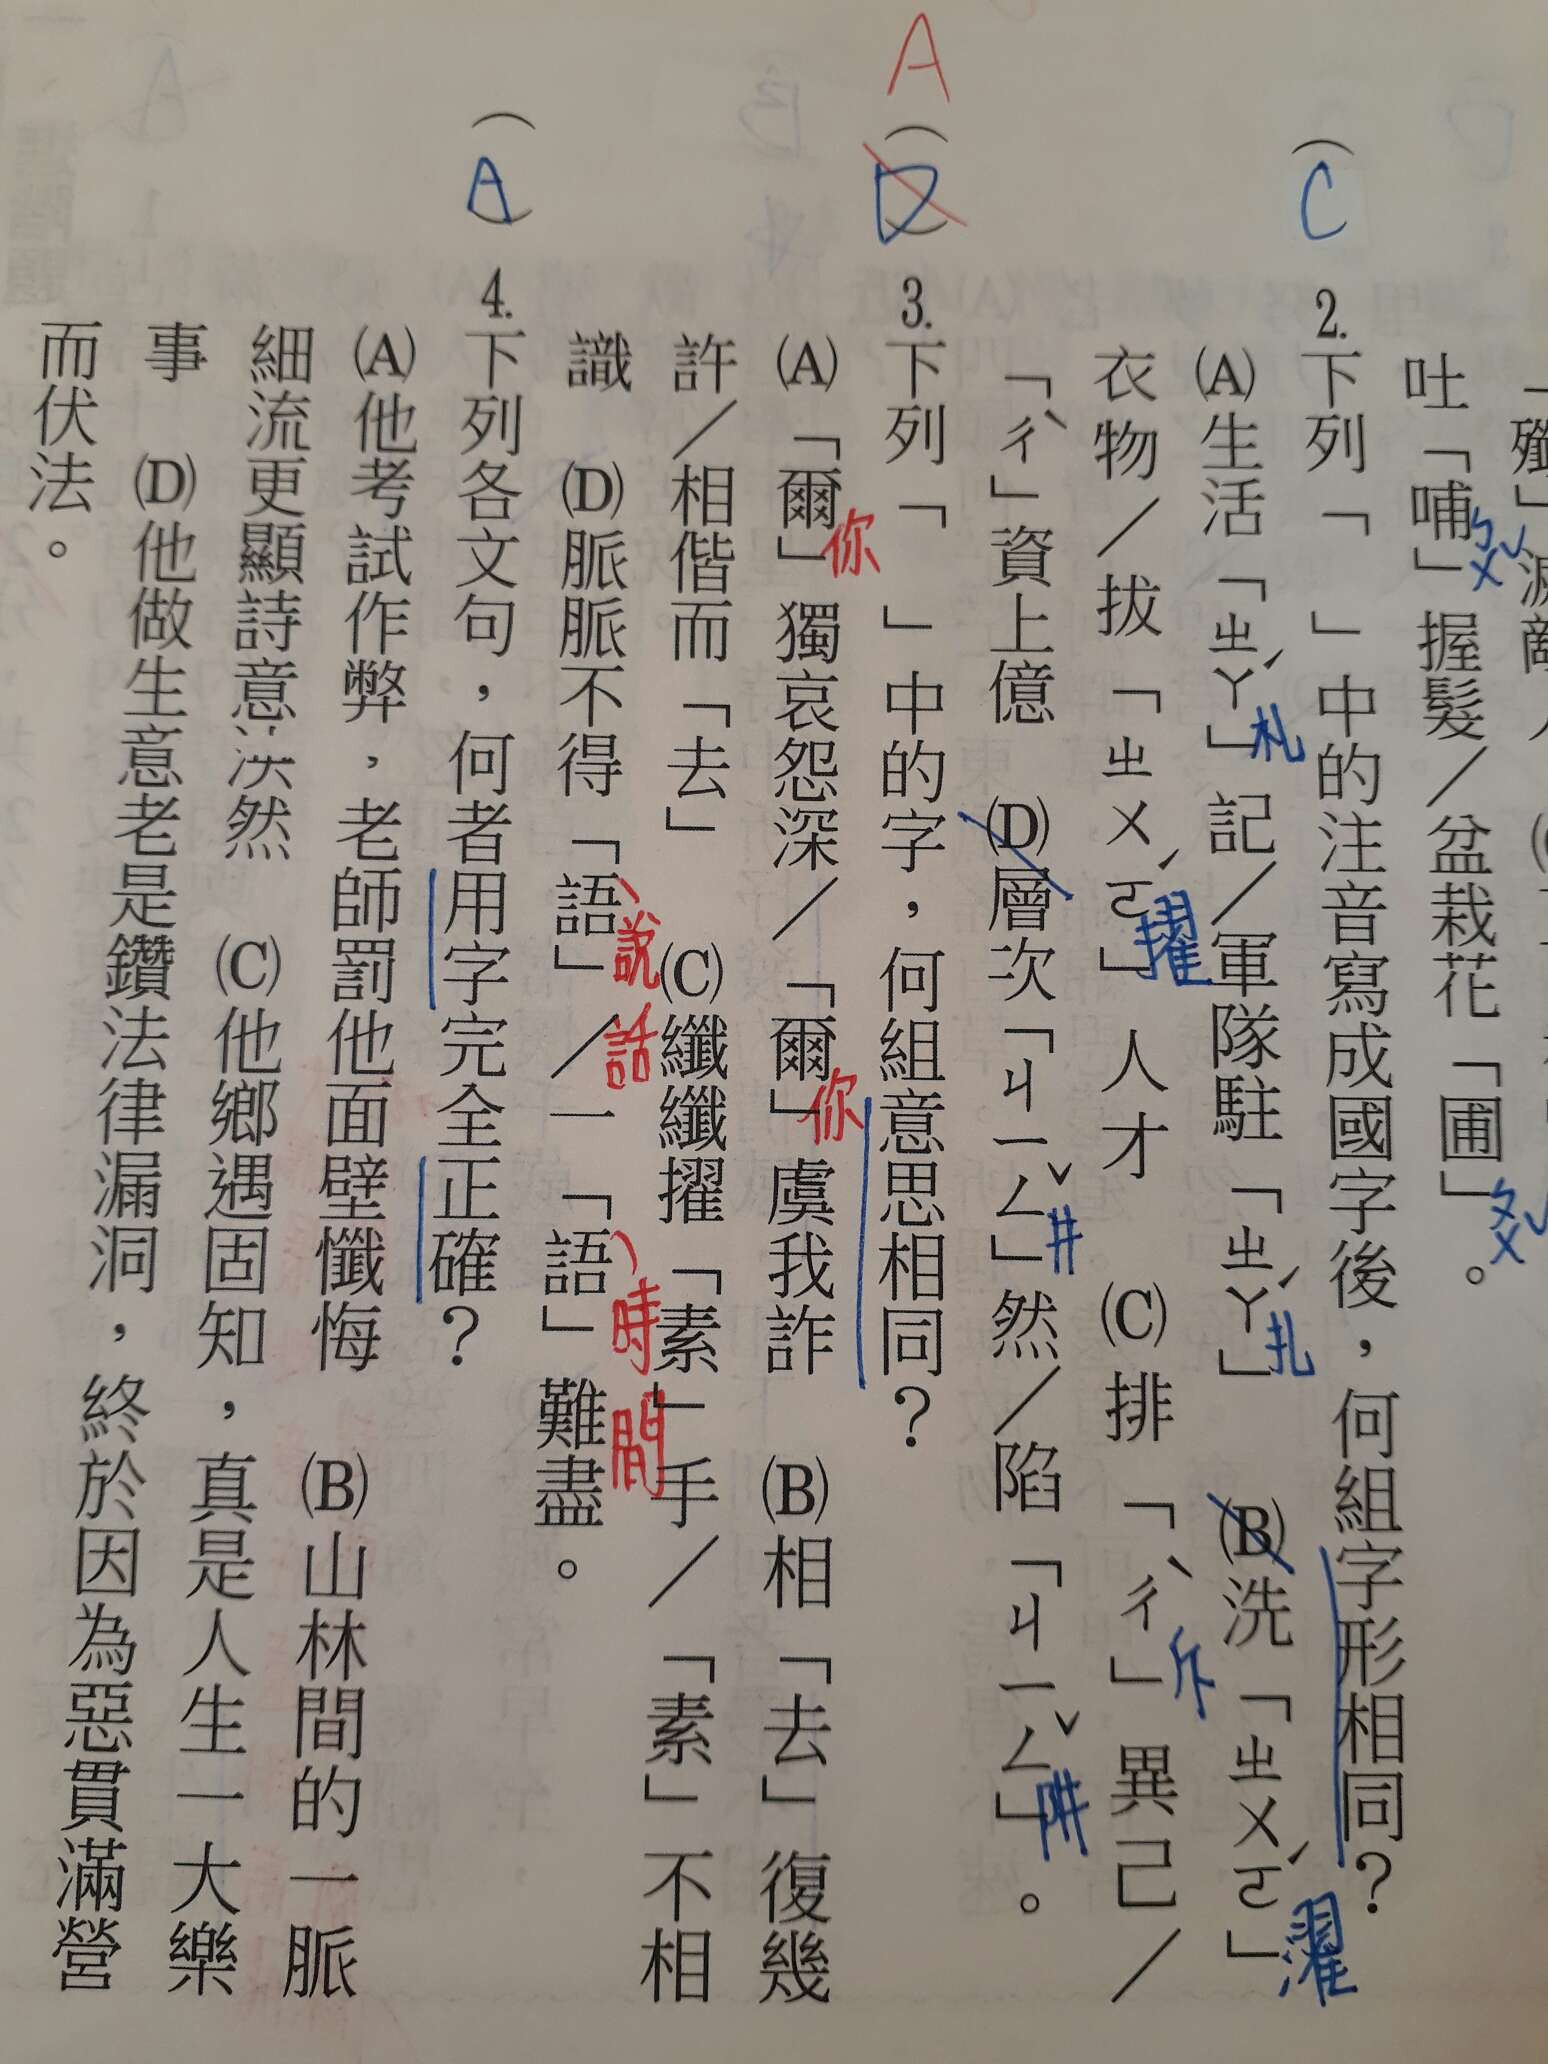 吐「哺」握髮／盆栽花「圃」。
ㄅㄨˇ
ㄆㄨˇ
(C)
2.下列「　」中的注音寫成國字後，何組字形相同？
(A)生活「ㄓㄚˊ」記／軍隊駐「ㄓㄚˊ」　(B)洗「ㄓㄨㄛˊ」
札
扎
濯
衣物／拔「ㄓㄨㄛˊ」人才　(C)排「ㄔˋ」異己／
擢
斥
「ㄔˋ」資上億　(D)層次「ㄐㄧㄥˇ」然／陷「ㄐㄧㄥˇ」。
井
阱
A
(D)
3.下列「　」中的字，何組意思相同？
(A)「爾」獨哀怨深／「爾」虞我詐　(B)相「去」復幾
你
你
許／相偕而「去」　(C)纖纖擢「素」手／「素」不相
識　(D)脈脈不得「語」／一「語」難盡。
說話
時間
(A)
4.下列各文句，何者用字完全正確？
(A)他考試作弊，老師罰他面壁懺悔　(B)山林間的一脈
細流更顯詩意泱然　(C)他鄉遇固知，真是人生一大樂
事　(D)他做生意老是鑽法律漏洞，終於因為惡貫滿營
而伏法。